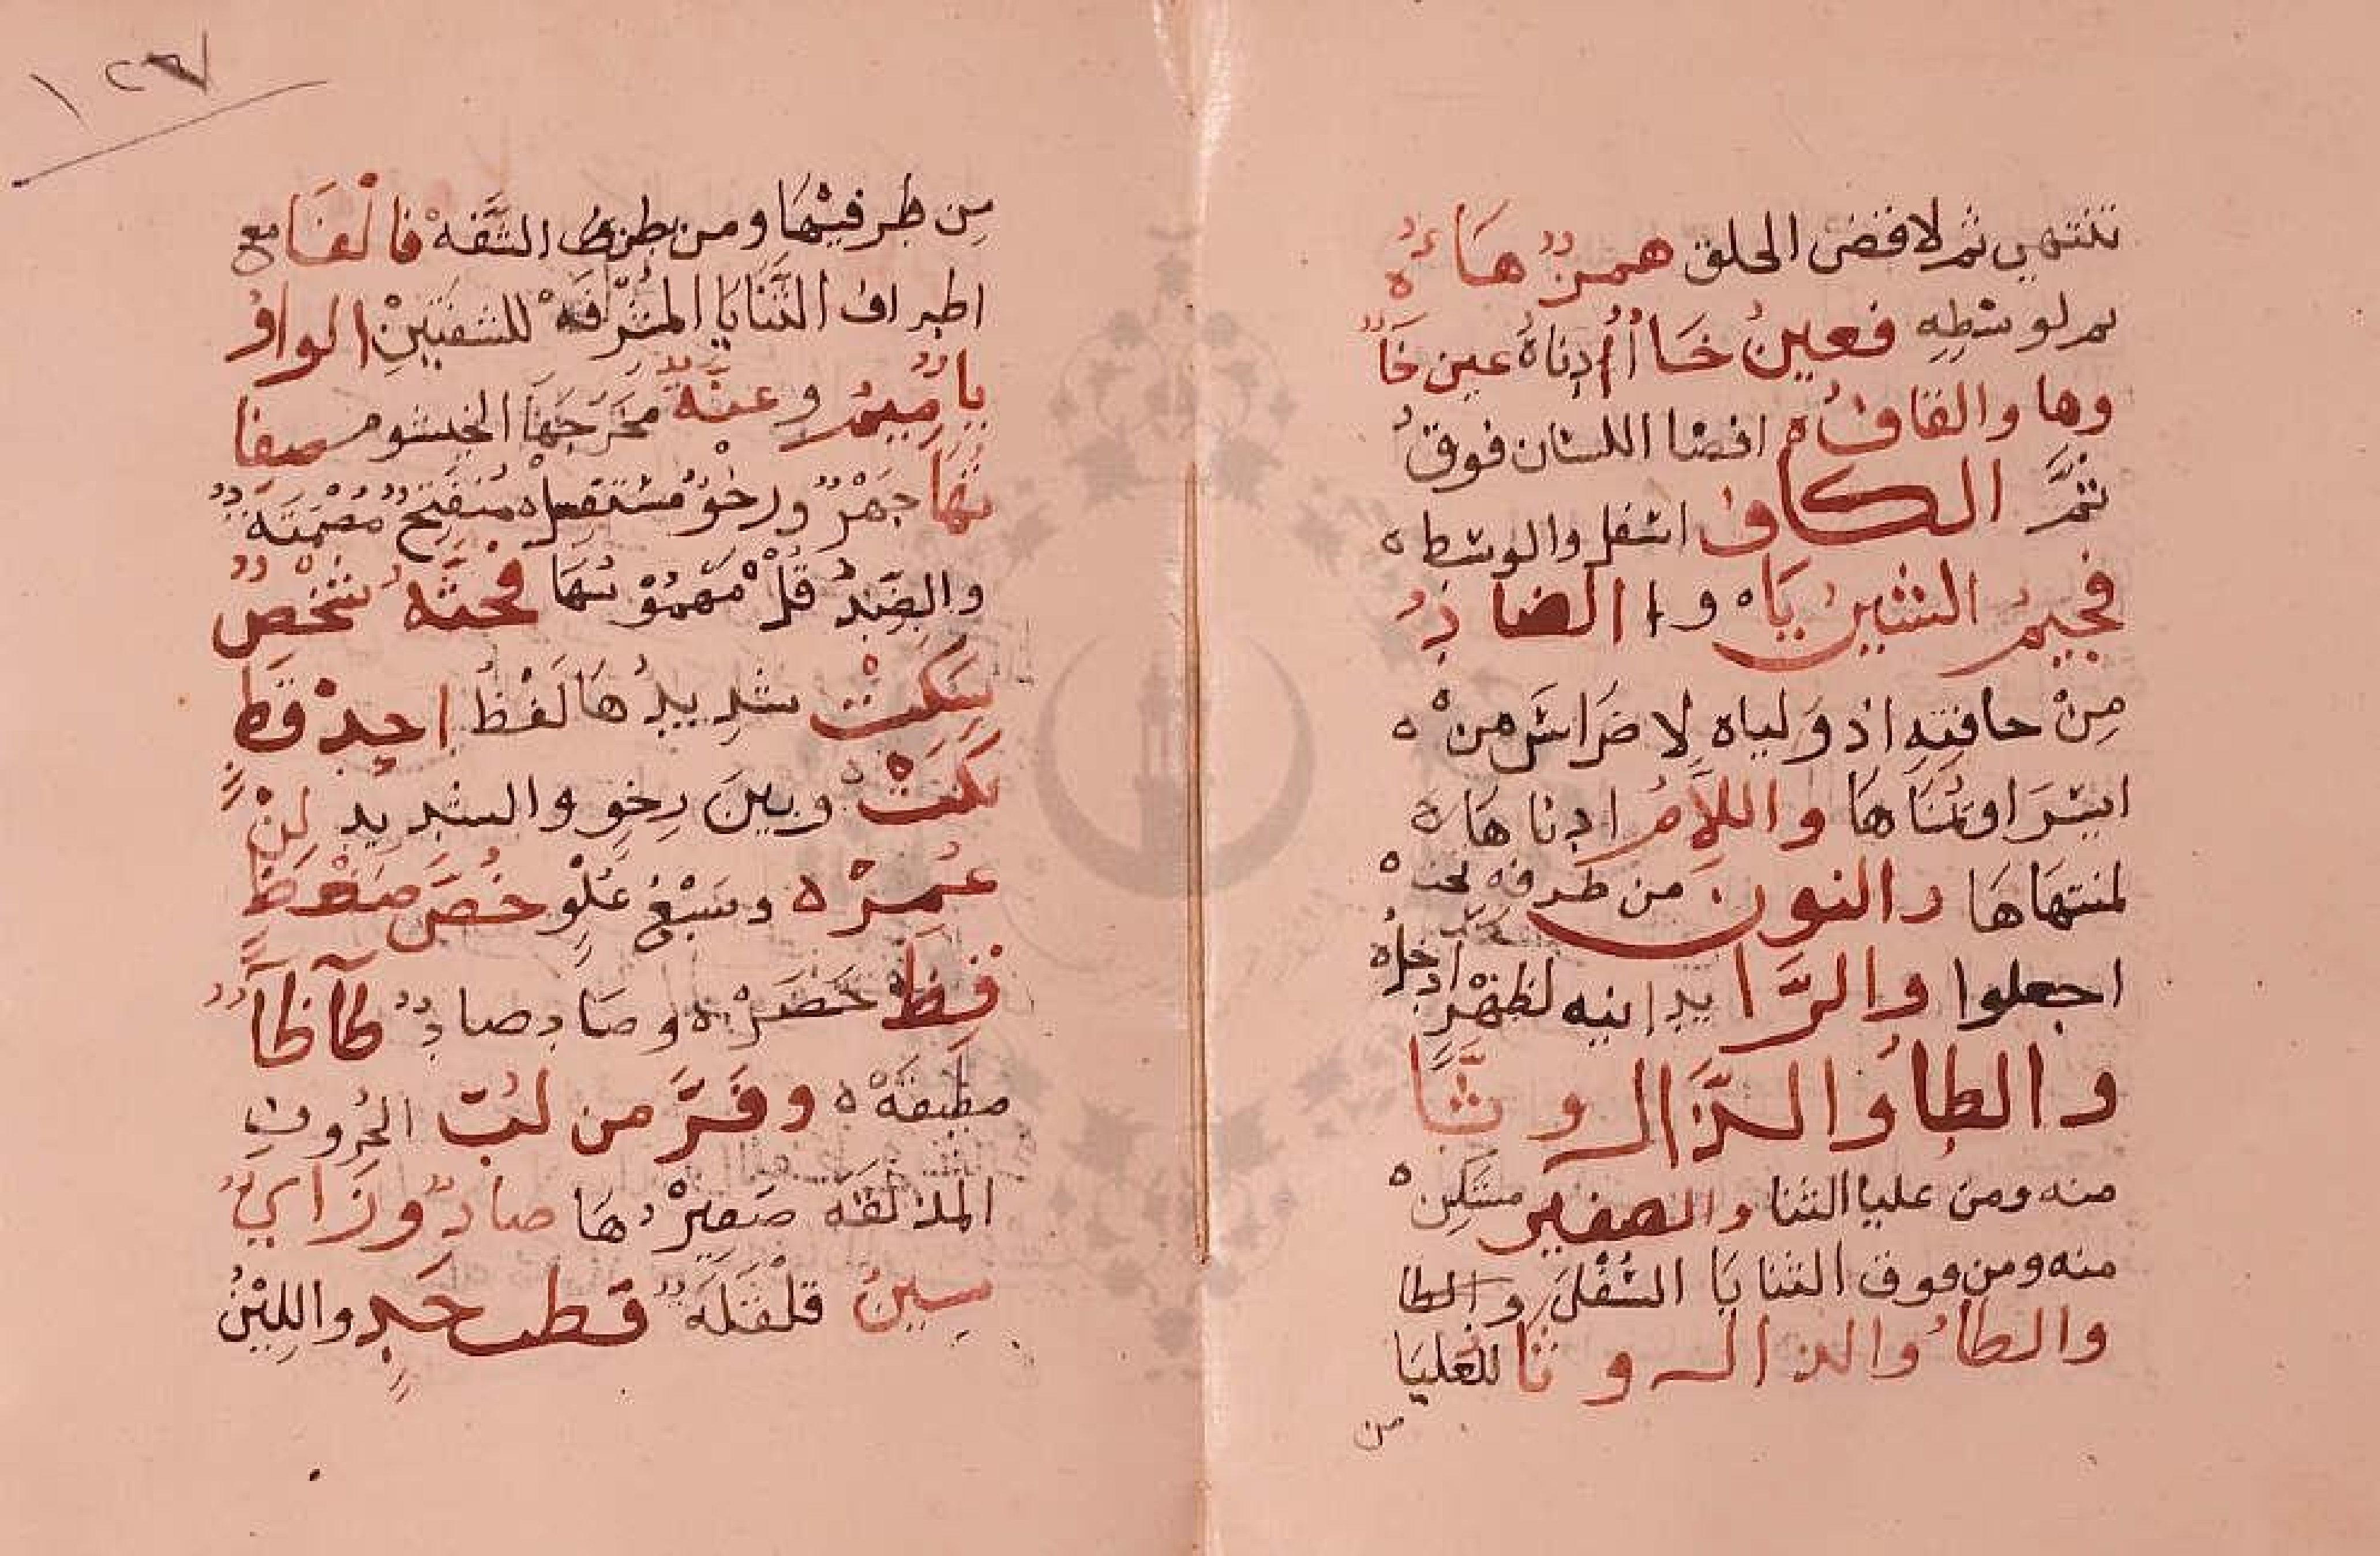 تنتهي ثم لاقضى الحلق همز هاء ه
ثم لوسطه فعين حاا أدناه عين خا
وها والقاف ه اقصا اللسان فوق
ثم الكاف اسفل والوسط ه
فجيم الشين ياه وا الضاد
من حافته اذ ولياه لاضراس من ه
ايسر او يمناها واللام ادناها ه
لمنتهاها والنون من طرفه تحت ه
اجعلوا والرا يدانيه لظهر ادخل ه
والطا والدال وتا
منه ومن عليا الثنا والصفير مستكن ه
منه ومن فوق الثنايا السفلى والطا
والظا والذال وثا للعليا
من
١٢٧
من طرفيهما ومن بطن الشفه فالفا مع
اطراف الثنايا المشرفه للشفتين الواو
با ميم وغنة مخرجها الخيشوم صفا
تها جهر ورخو مستفل ه منفتح مصمتة
والضد قل مهموسها فحثه شخص
سكت شديدها لفظ اجد قط
بكت ه وبين رخو والشديد لن
عمر ه وسبع علو خص ضغط
قظ حصر ه وصاد ضاد طا ظا
مطبقة ه وفر من لب الحروف
المذلقه صفيرها صاد وزاي
سين قلقلة قطب جد واللين